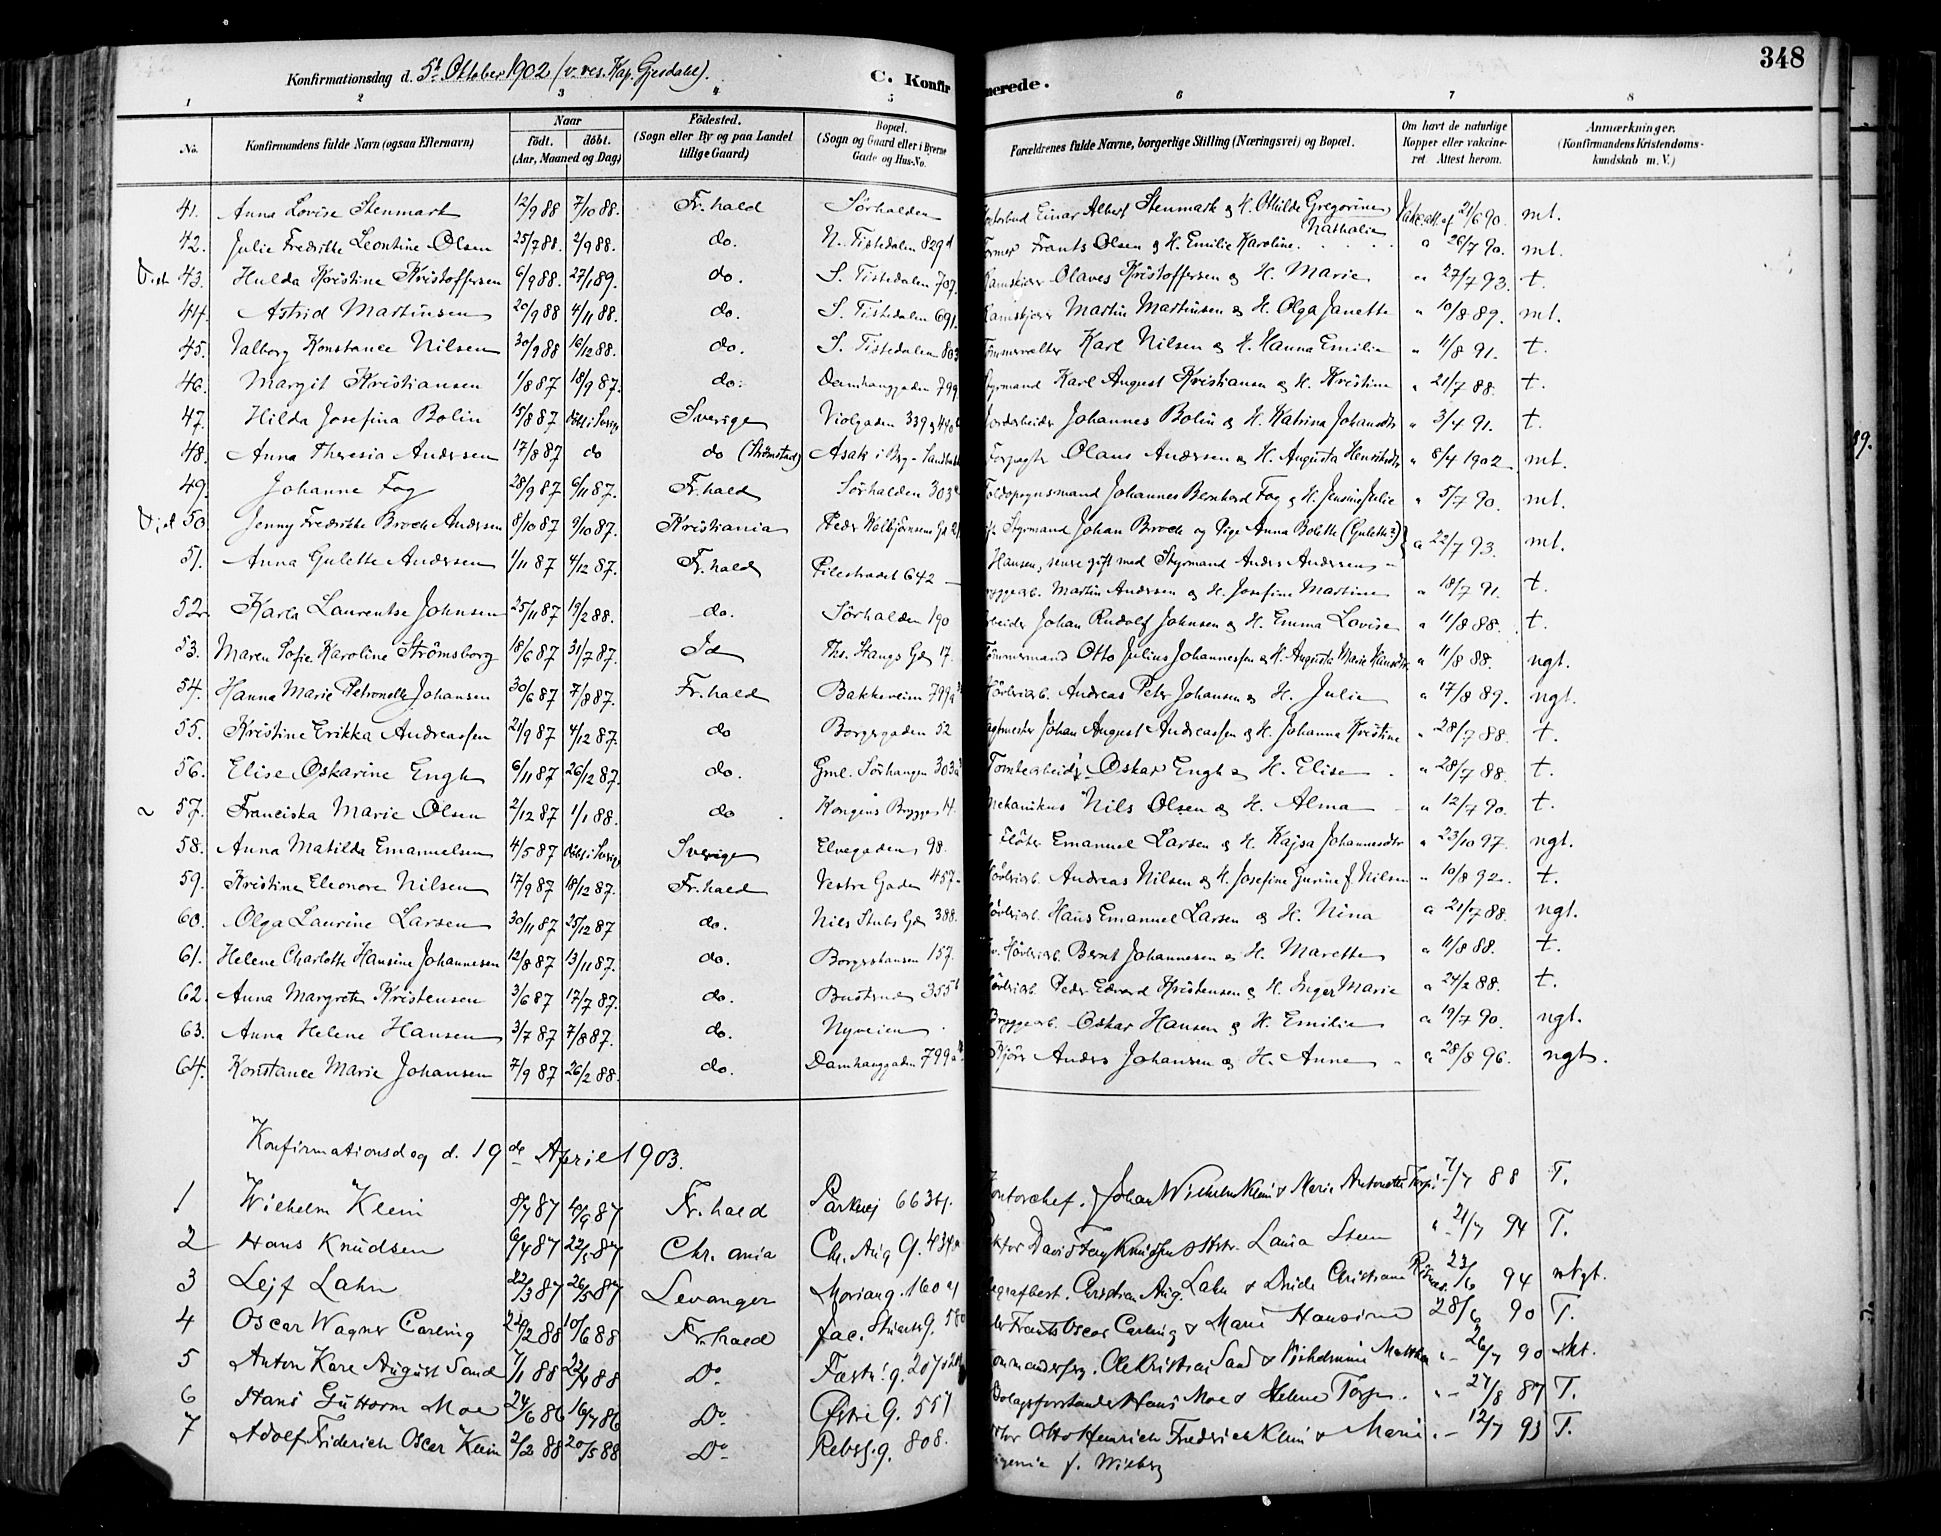 348
Konfirmationsdag d. 5t Oktober 1902 (v. res. Kap. Gjesdahl).
C. Konfir merede.
1 2 3 4 5 6 7 8
No. Konfirmandens fulde Navn (ogsaa Efternavn) Naar født. døbt. (Aar, Maaned og Dag) Födested. (Sogn eller By og paa Landet tillige Gaard) Bopæl. (Sogn og Gaard eller i Byerne Gade og Hus-No. Forældrenes fulde Navne, borgerlige Stilling (Næringsvei) og Bopæl. Om havt de naturlige Kopper eller vakcineret. Attest herom. Anmærkninger. (Konfirmandens Kristendomskundskab m. V.)
41. Anna Lovise Stenmark 12/9 88 7/10 88. Fr.hald Sørhalden Einar Albert Stenmark & H. Othilde Gregorine Nathalie 21/6 90. mt.
42. Julie Fredrikke Leontine Olsen 25/7 88. 2/9 88. do. N. Tistedalen 829d Former Frants Olsen & H. Emilie Karoline " 26/7 90. mt.
43. Hulda Kristine Kristoffersen 6/9 88. 27/1 89. do. S. Tistedalen 707. Olaves Kristoffersen & H. Marie " 27/7 93. t.
44. Astrid Martinsen 20/9 88 4/11 88. do. S. Tistedalen 691. Martin Martinsen & H. Olga Janette " 10/8 89. mt.
45. Valborg Konstance Nilsen 30/9 88 16/12 88. do. S. Tistedalen 803 Karl Nilsen & H. Hanna Emilie " 11/8 91. t.
46. Margit Kristiansen 1/8 87 18/9 87. do. Damhauggaden 799 Styrmand Karl August Kristiansen & H. Kristine " 21/7 88. t.
47. Hilda Josefina Bolin 15/8 87 Döbt i Sverige Sverige Violgaden 339 & 440 Jordarbeider Johannes Bolin & H. Katrina Johansdtr " 3/4 91. t.
48. Anna Theresia Andersen 17/8 87 do do (Strömstad) Asak i Brg - Forpagter Olaus Andersen & H. Augusta Henriksdtr " 8/4 1902 mt.
49. Johanne Fog 28/9 87 6/11 87. Fr.hald Sørhalden 303 Toldopsynsmand Johannes Bernhard Fog & H. Jensine Julie " 5/7 90. mt.
50. Jenny Fredrikke Broch Andersen 8/10 87 9/10 87. Kristiania Peder Kolbjørnsens Gd Styrmand Johan Broch og Pige Anna Bolette (Gulette?) Hansen, senere gift med Styrmand Anders Andersen " 22/7 93. mt.
51. Anna Gulette Andersen 1/11 87 4/12 87. Fr.hald Pilestrædet 642 Bryggearb. Martin Andersen & H. Josefine Martine " 18/7 91. t.
52. Karla Laurentse Johnsen 25/11 87 19/2 88. do. Sørhalden 190 Arbeider Johan Rudolf Johnsen & H. Emma Lovise " 11/8 88. t.
53. Maren Sofie Karoline Strömsborg 18/6 87 31/7 87. Id Ths. Stangs Gd 17. Tømmermand Otto Julius Johannessen & H. Augusta Marie Hansdtr. " 11/8 88. ngt.
54. Hanna Marie Petronelle Johansen 30/6 87 7/8 87. Fr.hald Bakkeveien 799a Andreas Peter Johansen & H. Julie " 17/8 89. ngt.
55. Kristine Erikka Andreassen 21/9 87 4/12 87. do Borgergaden 52 Sagmester Johan August Andreassen & H. Johanna Kristine " 28/7 88. t.
56. Elise Oskarine Engh 6/11 87 26/12 87. do. Gml. Sørhaugen 303 Tomtearbeider Oskar Engh & H. Elise " 28/7 88. t.
57. Franciska Marie Olsen 2/12 87 1/1 88. do Kongens Brygge 14. Mekanikus Nils Olsen & H. Alma " 12/7 90. t.
58. Anna Matilda Emanuelsen 4/5 87 Döbt i Sverige Sverige Elvegaden 98. Fløter Emanuel Larsen & H. Kajsa Johannesdtr " 23/10 97. ngt.
59. Kristine Eleonore Nilsen 17/9 87 18/12 87. Fr.hald Vestre Gaden 457. Andreas Nilsen & H. Josefine Gurine f. Nilsen " 10/8 92. t.
60. Olga Laurine Larsen 30/11 87 25/12 87 do. Nils Stubs Gd 388. Hans Emanuel Larsen & H. Nina " 21/7 88. ngt.
61. Helene Charlotte Hansine Johannesen 12/8 87 13/11 87. do. Borgerskansen 157. Bernt Johannesen & H. Marette " 11/8 88. t.
62. Anna Margrete Kristensen 3/6 87 17/7 87. do. Busterud 355b Peder Edvard Kristensen & H. Inger Marie " 24/2 88. t.
63. Anna Helene Hansen 3/7 87 7/8 87. do. Nyveien Bryggearb. Oskar Hansen & H. Emilie " 19/7 90. ngt.
64. Konstance Marie Johansen 7/9 87 26/2 88. do. Damhauggaden 799a Anders Johansen & H. Anne " 28/8 96. ngt.
Konfirmationsdag d. 19de April 1903.
1 Wilhelm Klein 8/7 87 Fr.hald Parkvej 663 Kontorchef. Johan Wilhelm Klein & Marie Antonette 7/7 88 T.
2 Hans Knudsen 6/4 87 22/5 87 Chr.ania Ch. Aug G. 434 Laura Steen " 21/7 94 T.
3 Lejf Lahn 22/3 87 26/5 87 Levanger Moriang. 160 Christian Aug. Lahn & Christiane 23/6 94 mkgt.
4 Oscar Wagner Carling 22/2 88 10/6 88 Fr.hald Jac. Stuartsg. Frants Oscar Carling & Marie Hansine 28/6 90 T.
5 Anton Karl August Sand 7/1 88 22/4 88 Do Fæstn.g. 207 Ole Kristian Sand & Vilhelmine " 26/7 90 mkt.
6 Hans Guttorm Moe 24/6 86 16/7 86 Do Østre G. 557 Hans Moe & Helene " 27/8 87 T.
7 Adolf Friderich Oscar Klein 2/2 88 20/5 88 Do Rebslg. 808. Otto Henrich Frederich Klein & Marie f. Wieberg " 12/7 93 T.